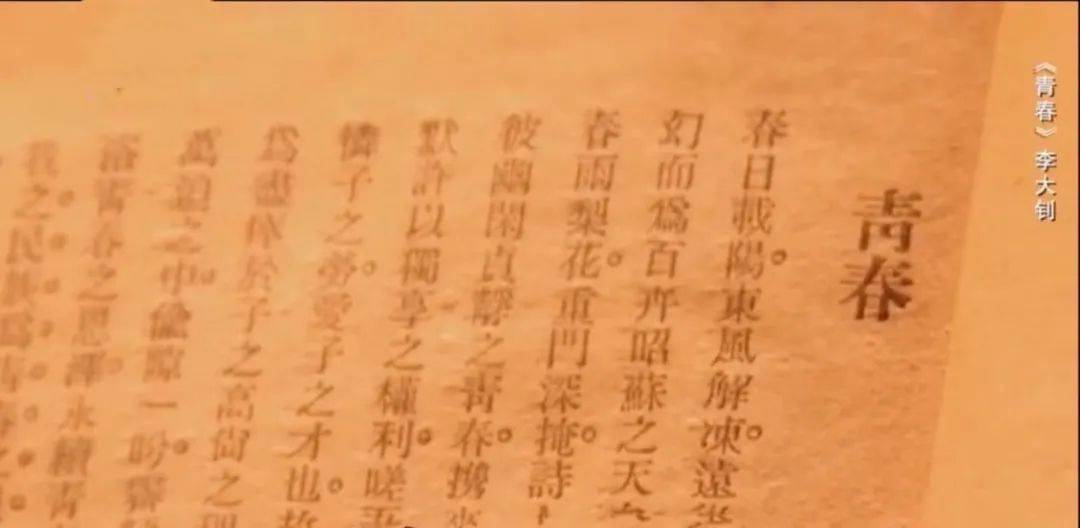 《青春》李大钊
青春
春日載陽。東風解凍。遠
幻而爲百卉昭蘇之天
春雨梨花。重門深掩。詩
彼幽閑貞靜之青春。攙
默許以獨享之權利。嗟吾
憐子之勞。愛子之才也。
爲盡瘁於子之高尚之理
萬迫之中。倫一盼
浴青春之恩澤。永續青
我之民族爲青春之